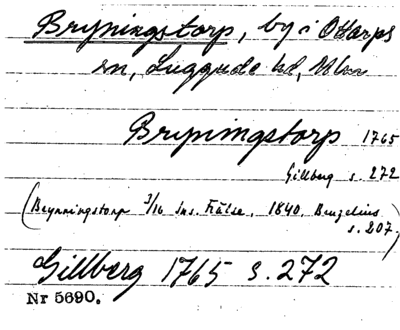 Bryningstorp, by i Ottarps
sn, Luggude hd, Mlm
Bryningstorp 1765
Gillberg s. 272
(Brynningstorp 3/16 Ins. Frälse, 1840, Benzelius
s. 207.)
Gillberg 1765 s. 272
Nr 5690.